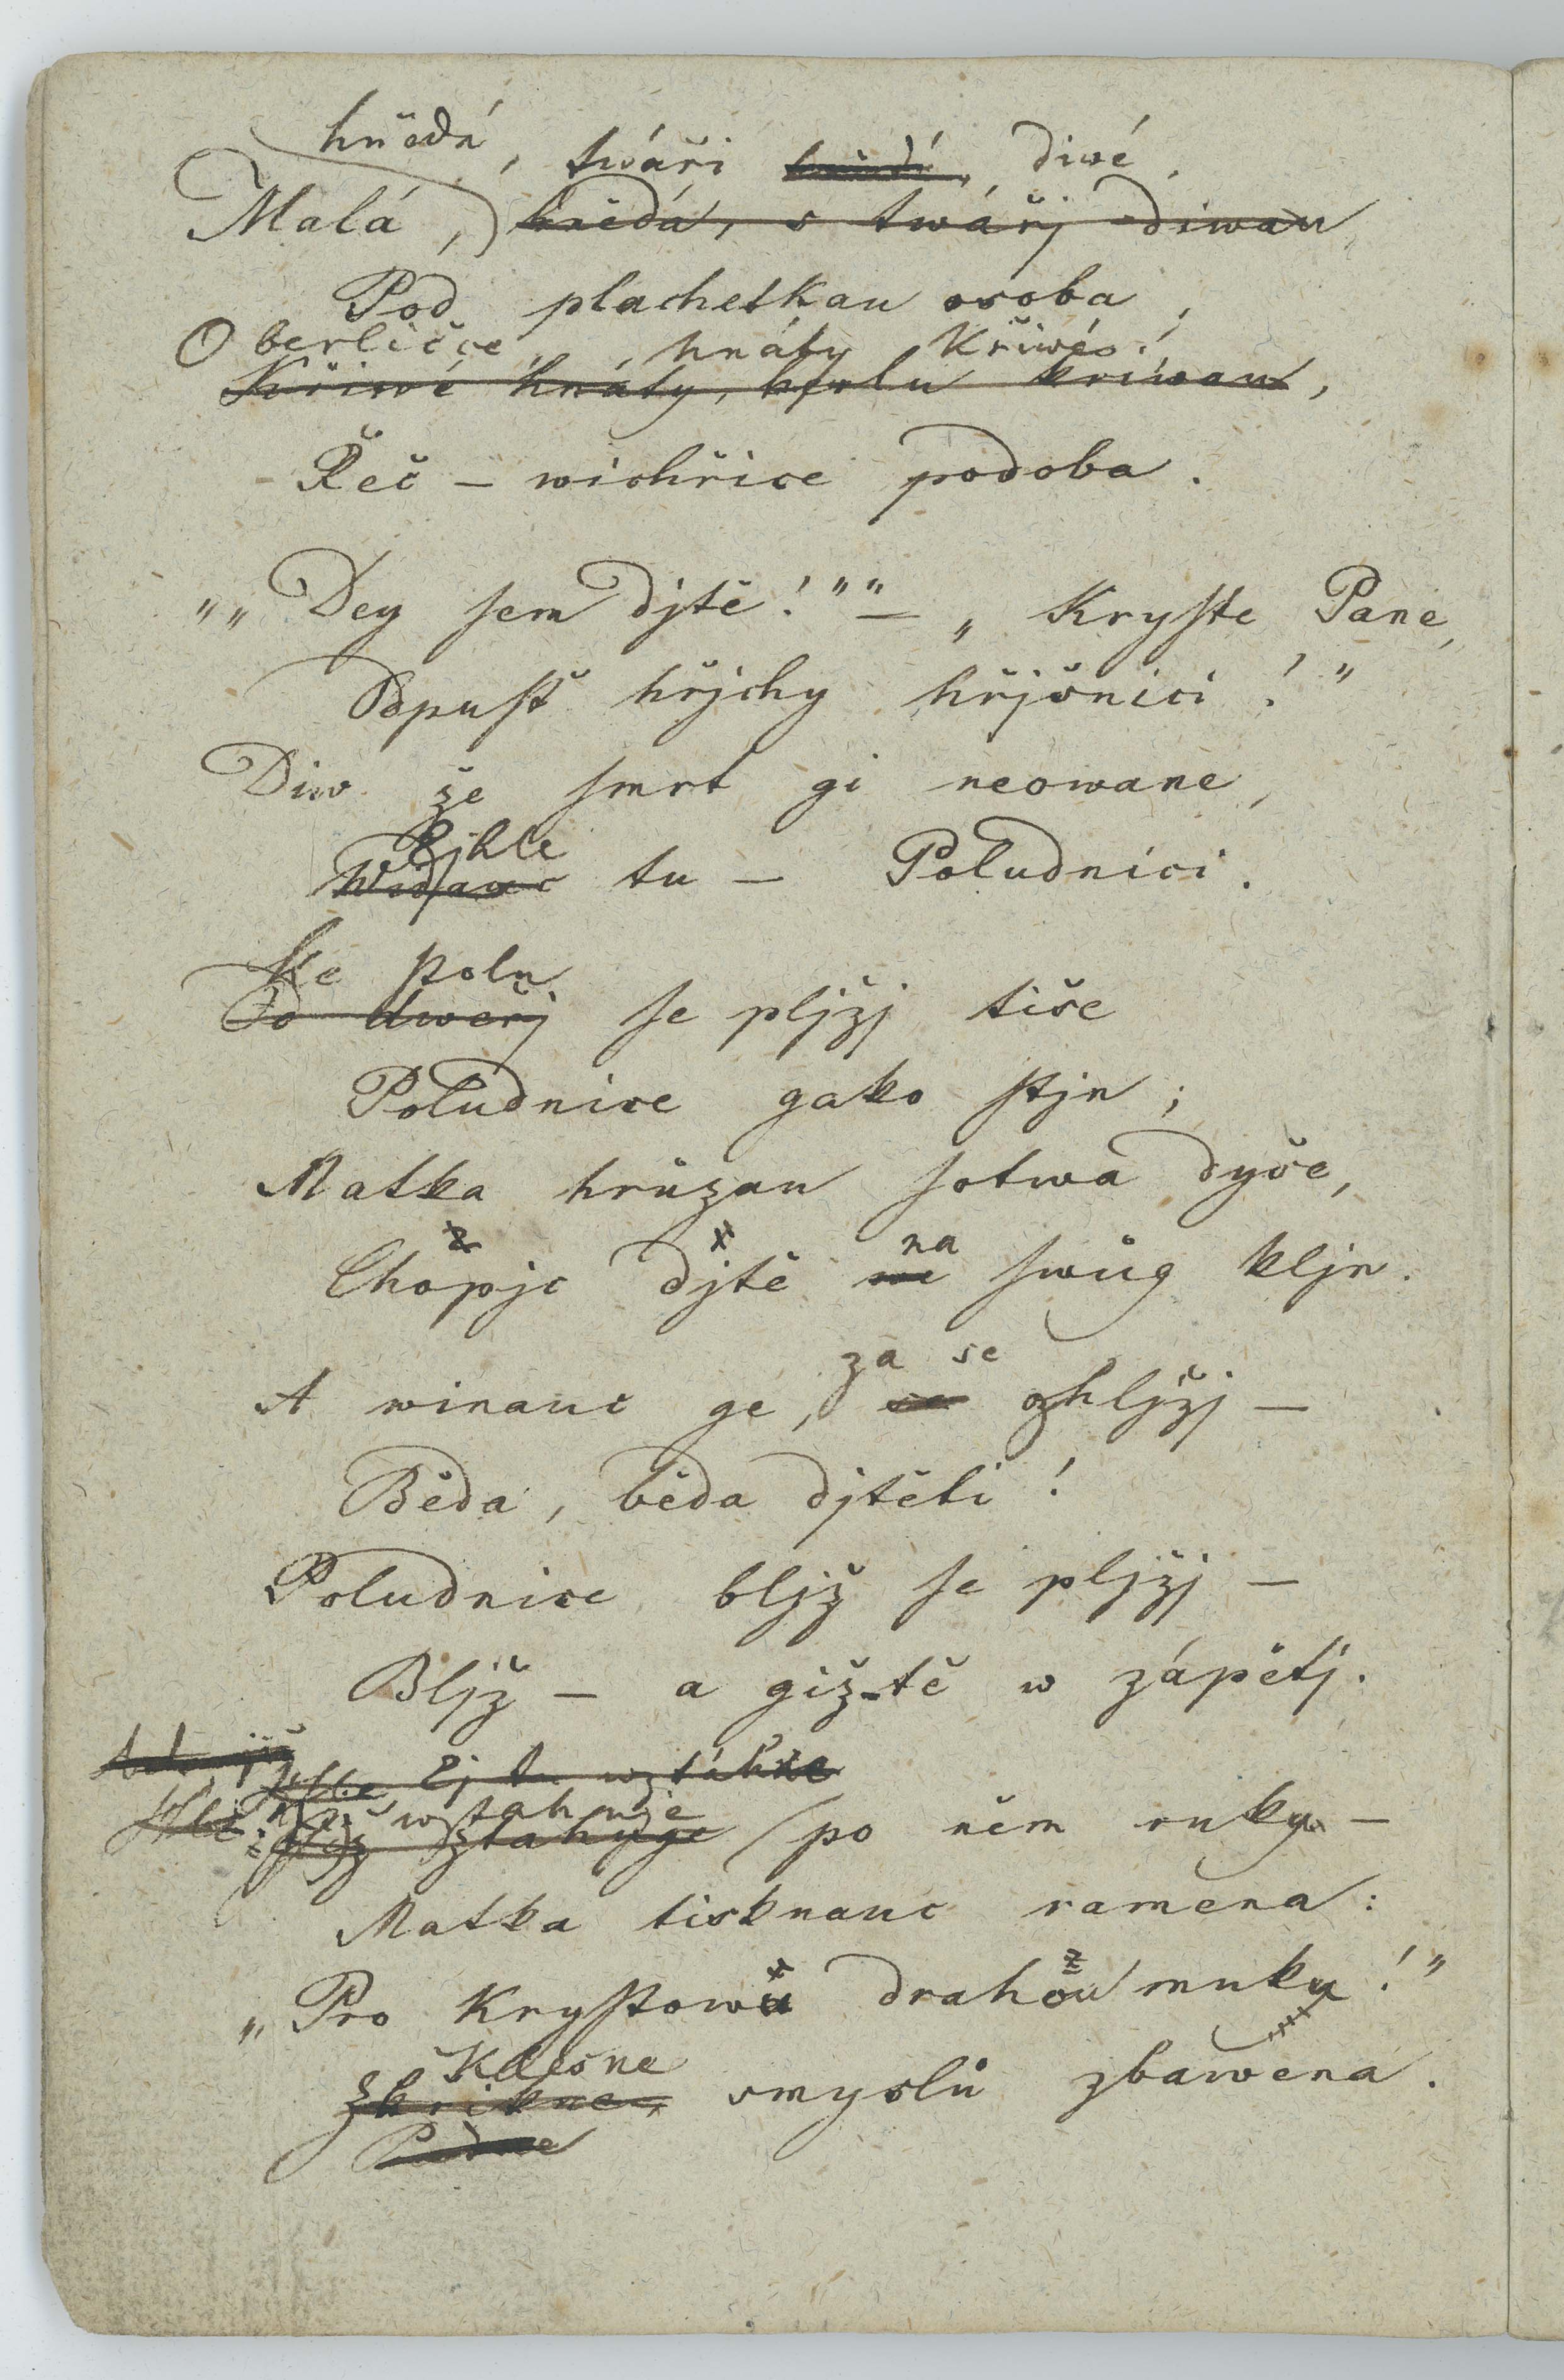 hnědá, twáři diwé,
Malá, hnědá, s twářj diwau
Pod plachetkau osoba,
O berličce, hnáty křiwé;
Křiwé hnáty, berlu křiwau,
Řeč – wichřice podoba.
„„Dey sem djtě!““ – „Kryste Pane,
Odpusť hřjchy hřjšnici!“
Diw že smrt gi neowane,
Ejhle
Widauc tu – Poludnici.
Ke stolu
Od dweřj se pljžj tiše
Poludnice gako stjn;
Matka hrůzau sotwa dyše,
na
Chopjc djtě we swůg kljn.
za se
A winauc ge, se ohljžj –
Běda, běda djtěti!
Poludnice bljž se pljžj –
Bljž – a giž tě w zápětj.
Ej tu wztáhne
Hle, wztahuje
Hle: giž wztahuge po něm ruku –
Matka tisknauc ramena:
„Pro Krystowu drahou muku!“
Klesne
Zkřikne, smyslů zbawena.
Padne